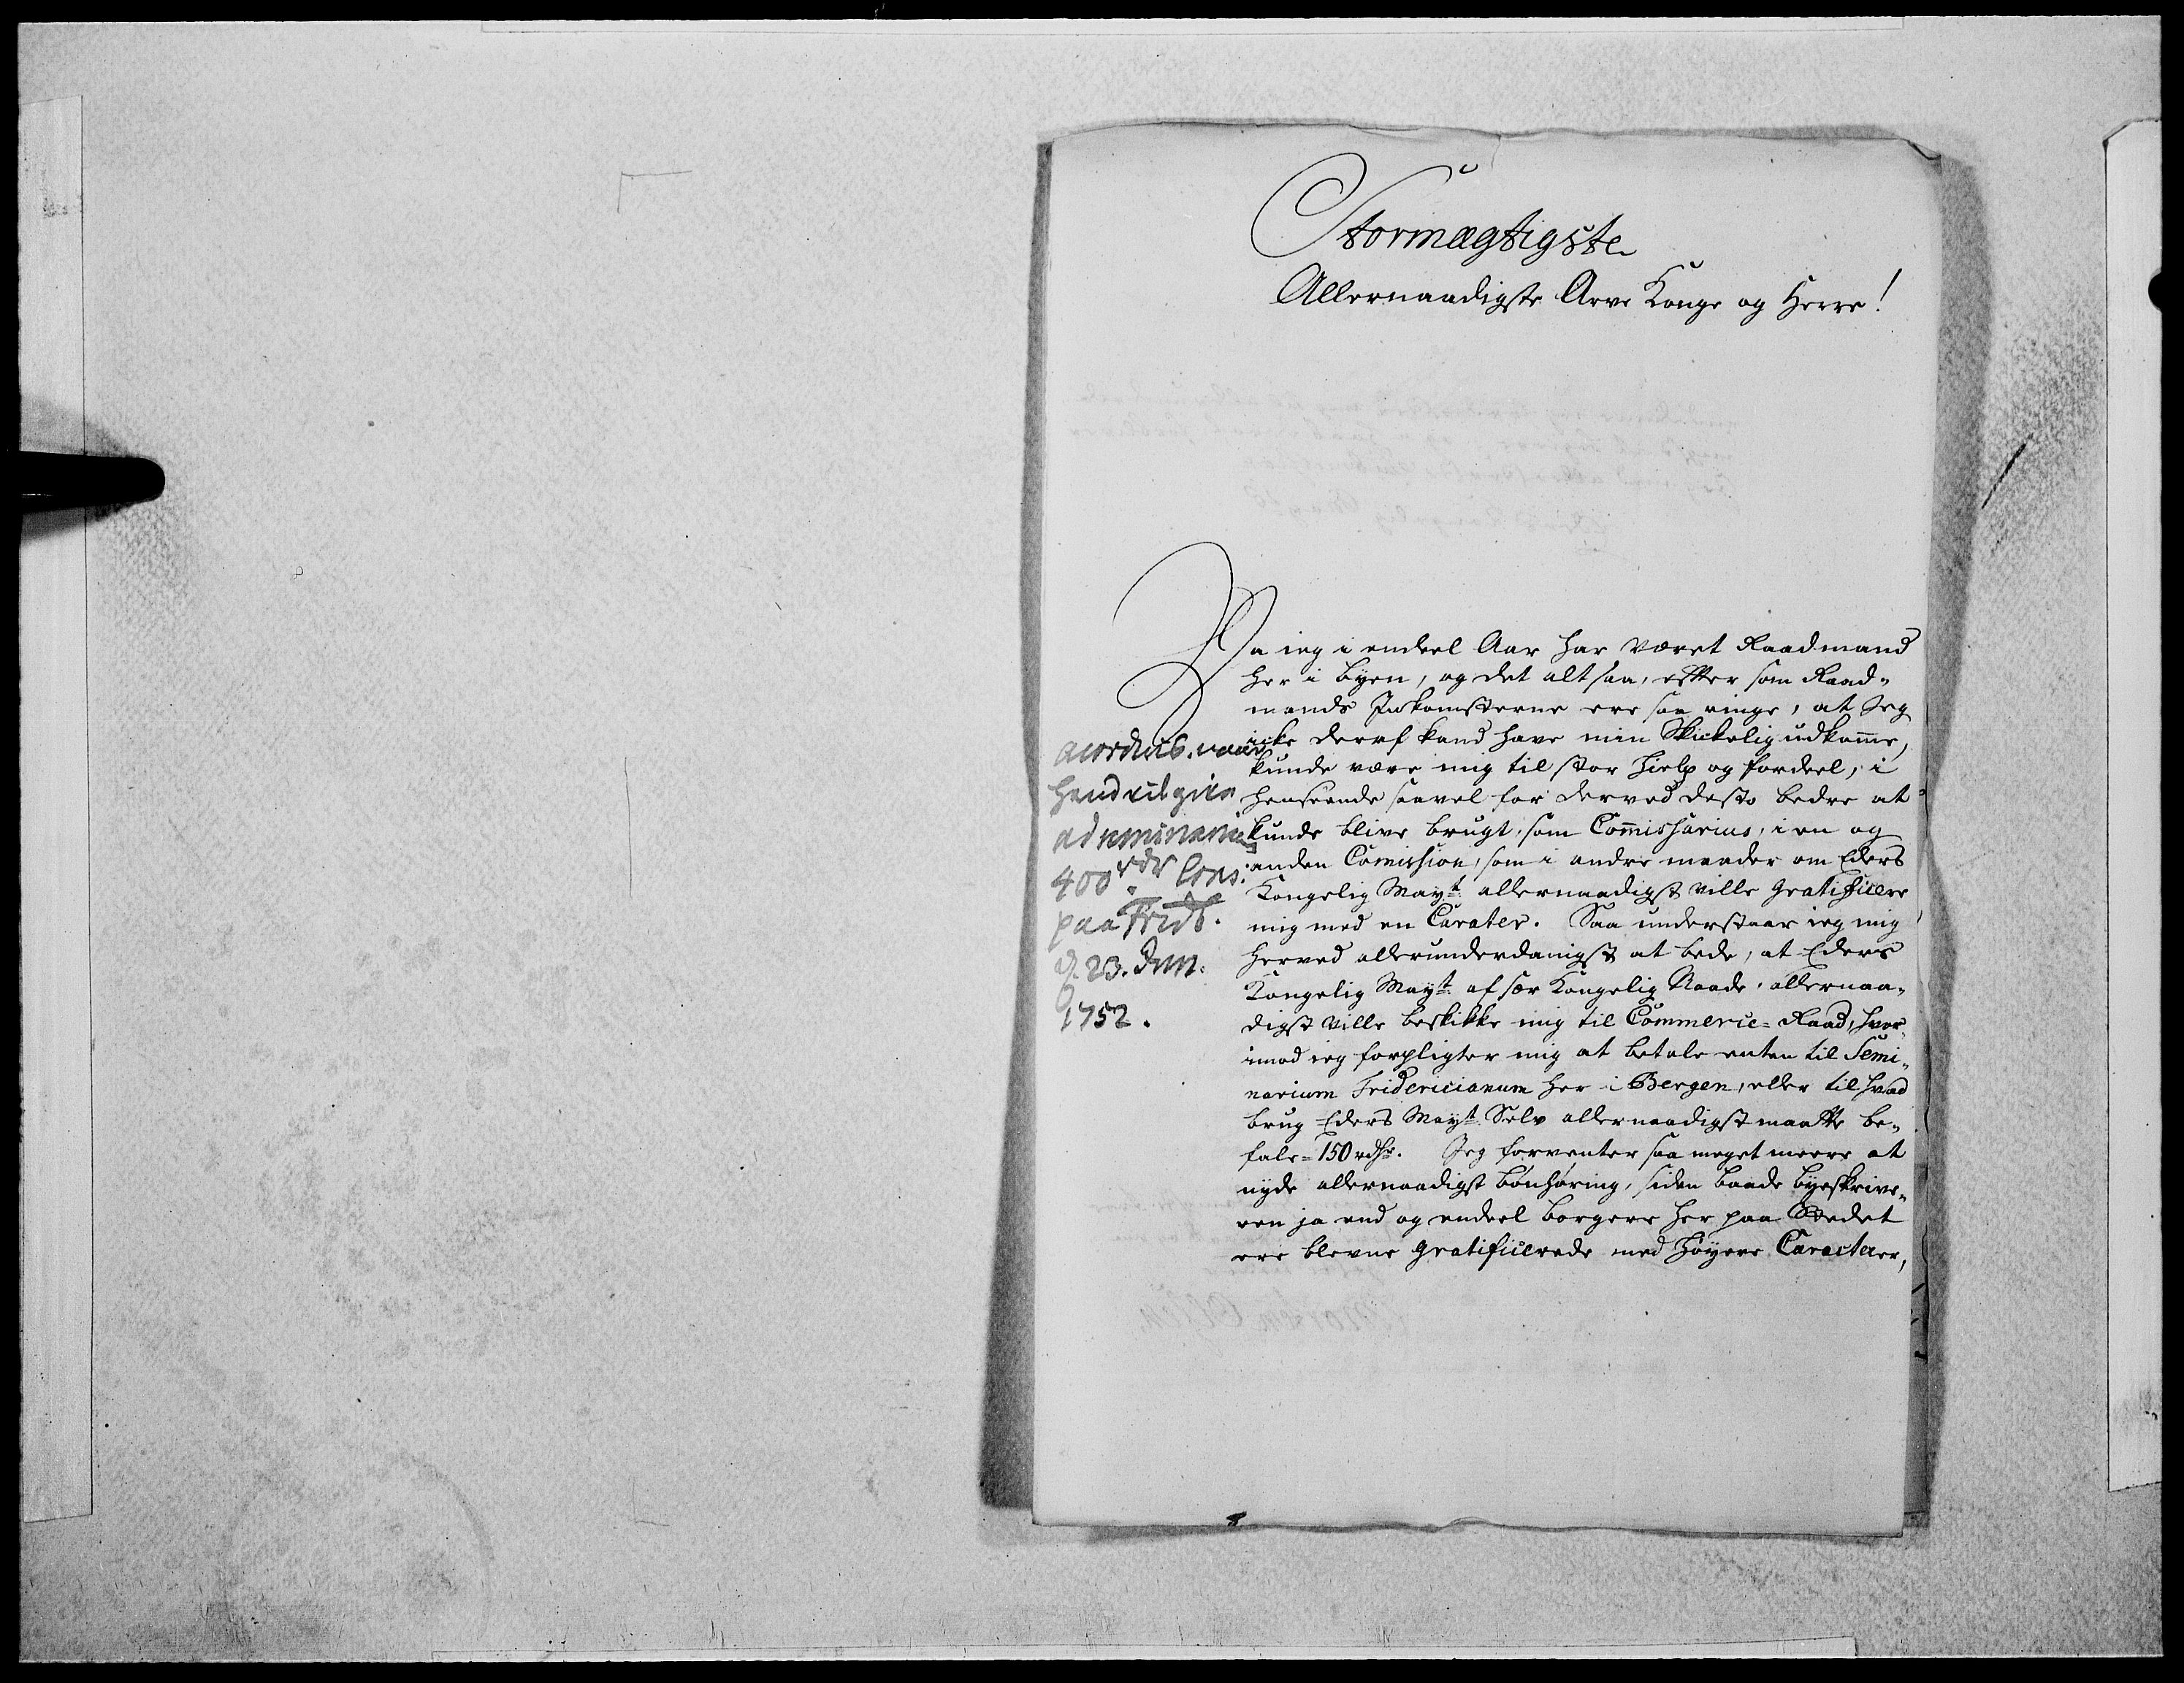 Stormægtigste
Allernaadigste Arve Konge og Herre!
Da ieg i endeel Aar har været Raadmand
her i byen, og det alt saa, efftersom Raad-
mands Indkomsterne ere saa ringe, at Jeg
icke deraf kand have min Skickelig udkomme,
kunde være mig til stor Hielp og fordeel, i
henseende saavel for derved desto bedre at
kunde blive brugt, som Commissarius, i en og
anden Commission, som i andre maader om Eders
Kongelig Mayt. allernaadigst ville gratificere
mig med en Carater. Saa understaar ieg mig
herved allerunderdanigst at bede, at Eders
Kongelig Mayt. af sær Kongelig Naade, allernaa-
digst ville beskikke mig til Commerce-Raad, hvor-
imod ieg forpligter mig at betale enten til Semi-
narium Fridericianum her i Bergen, eller til hvad
brug Eders Mayt. Selv allernaadigst maatte be-
fale = 150 rdlr. Jeg forventer saa meget meere at
nyde allernaadigst bønhøring, siden baade byeskrive-
ren ja end og endeel borgere her paa Stedet
ere blevne gratificerede med høyere Caracterer,
hand vil give
ad seminarium
400 rdr
paa Fridb.
d. 23. Jun.
1752.